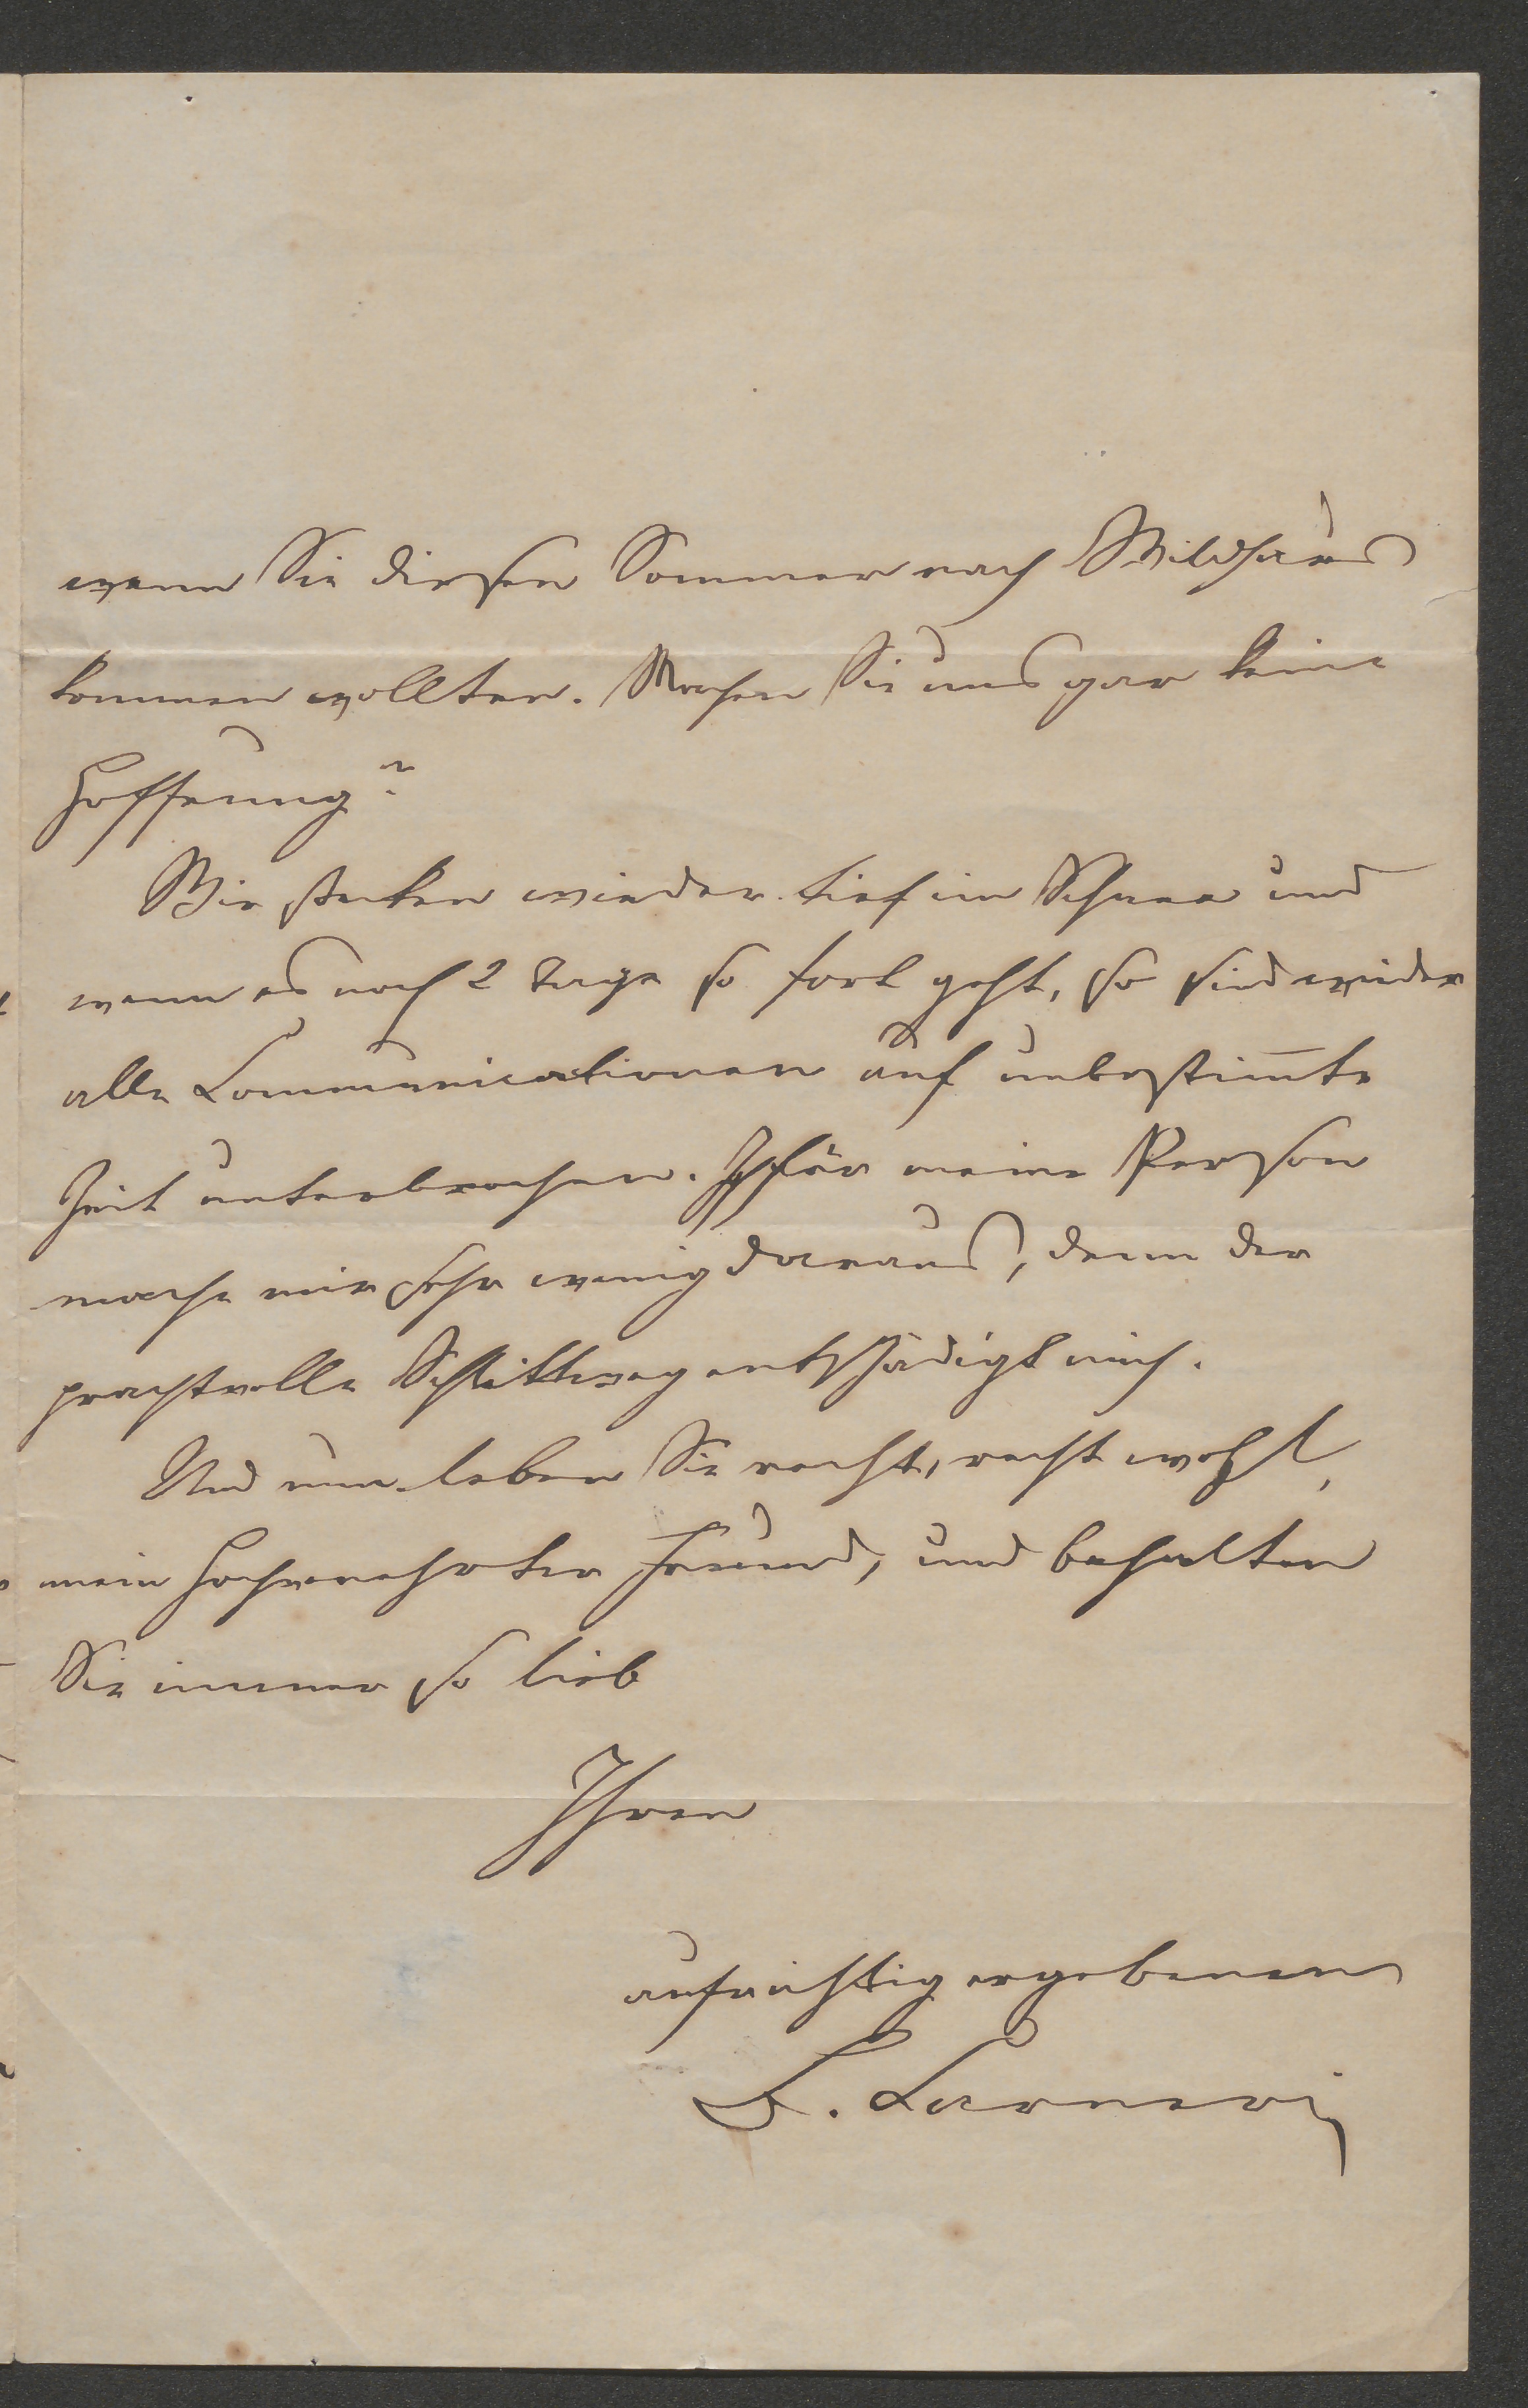 wenn Sie diesen Sommer nach Wildhaus
kommen wollten. Machen Sie uns gar keine
Hoffnung?
Wir stecken wieder tief im Schnee und
wenn es noch 2 Tage so fort geht, so sind wieder
alle Communicationen auf unbestim̅te
Zeit unterbrochen. Ich für meine Person
mache mir sehr wenig daraus, denn der
prachtvolle Schlittweg entschädigt mich.
Und nun leben Sie recht, recht wohl,
mein hochverehrter Freund, und behalten
Sie immer so lieb
Ihren
aufrichtig ergebenen
B. Carneri